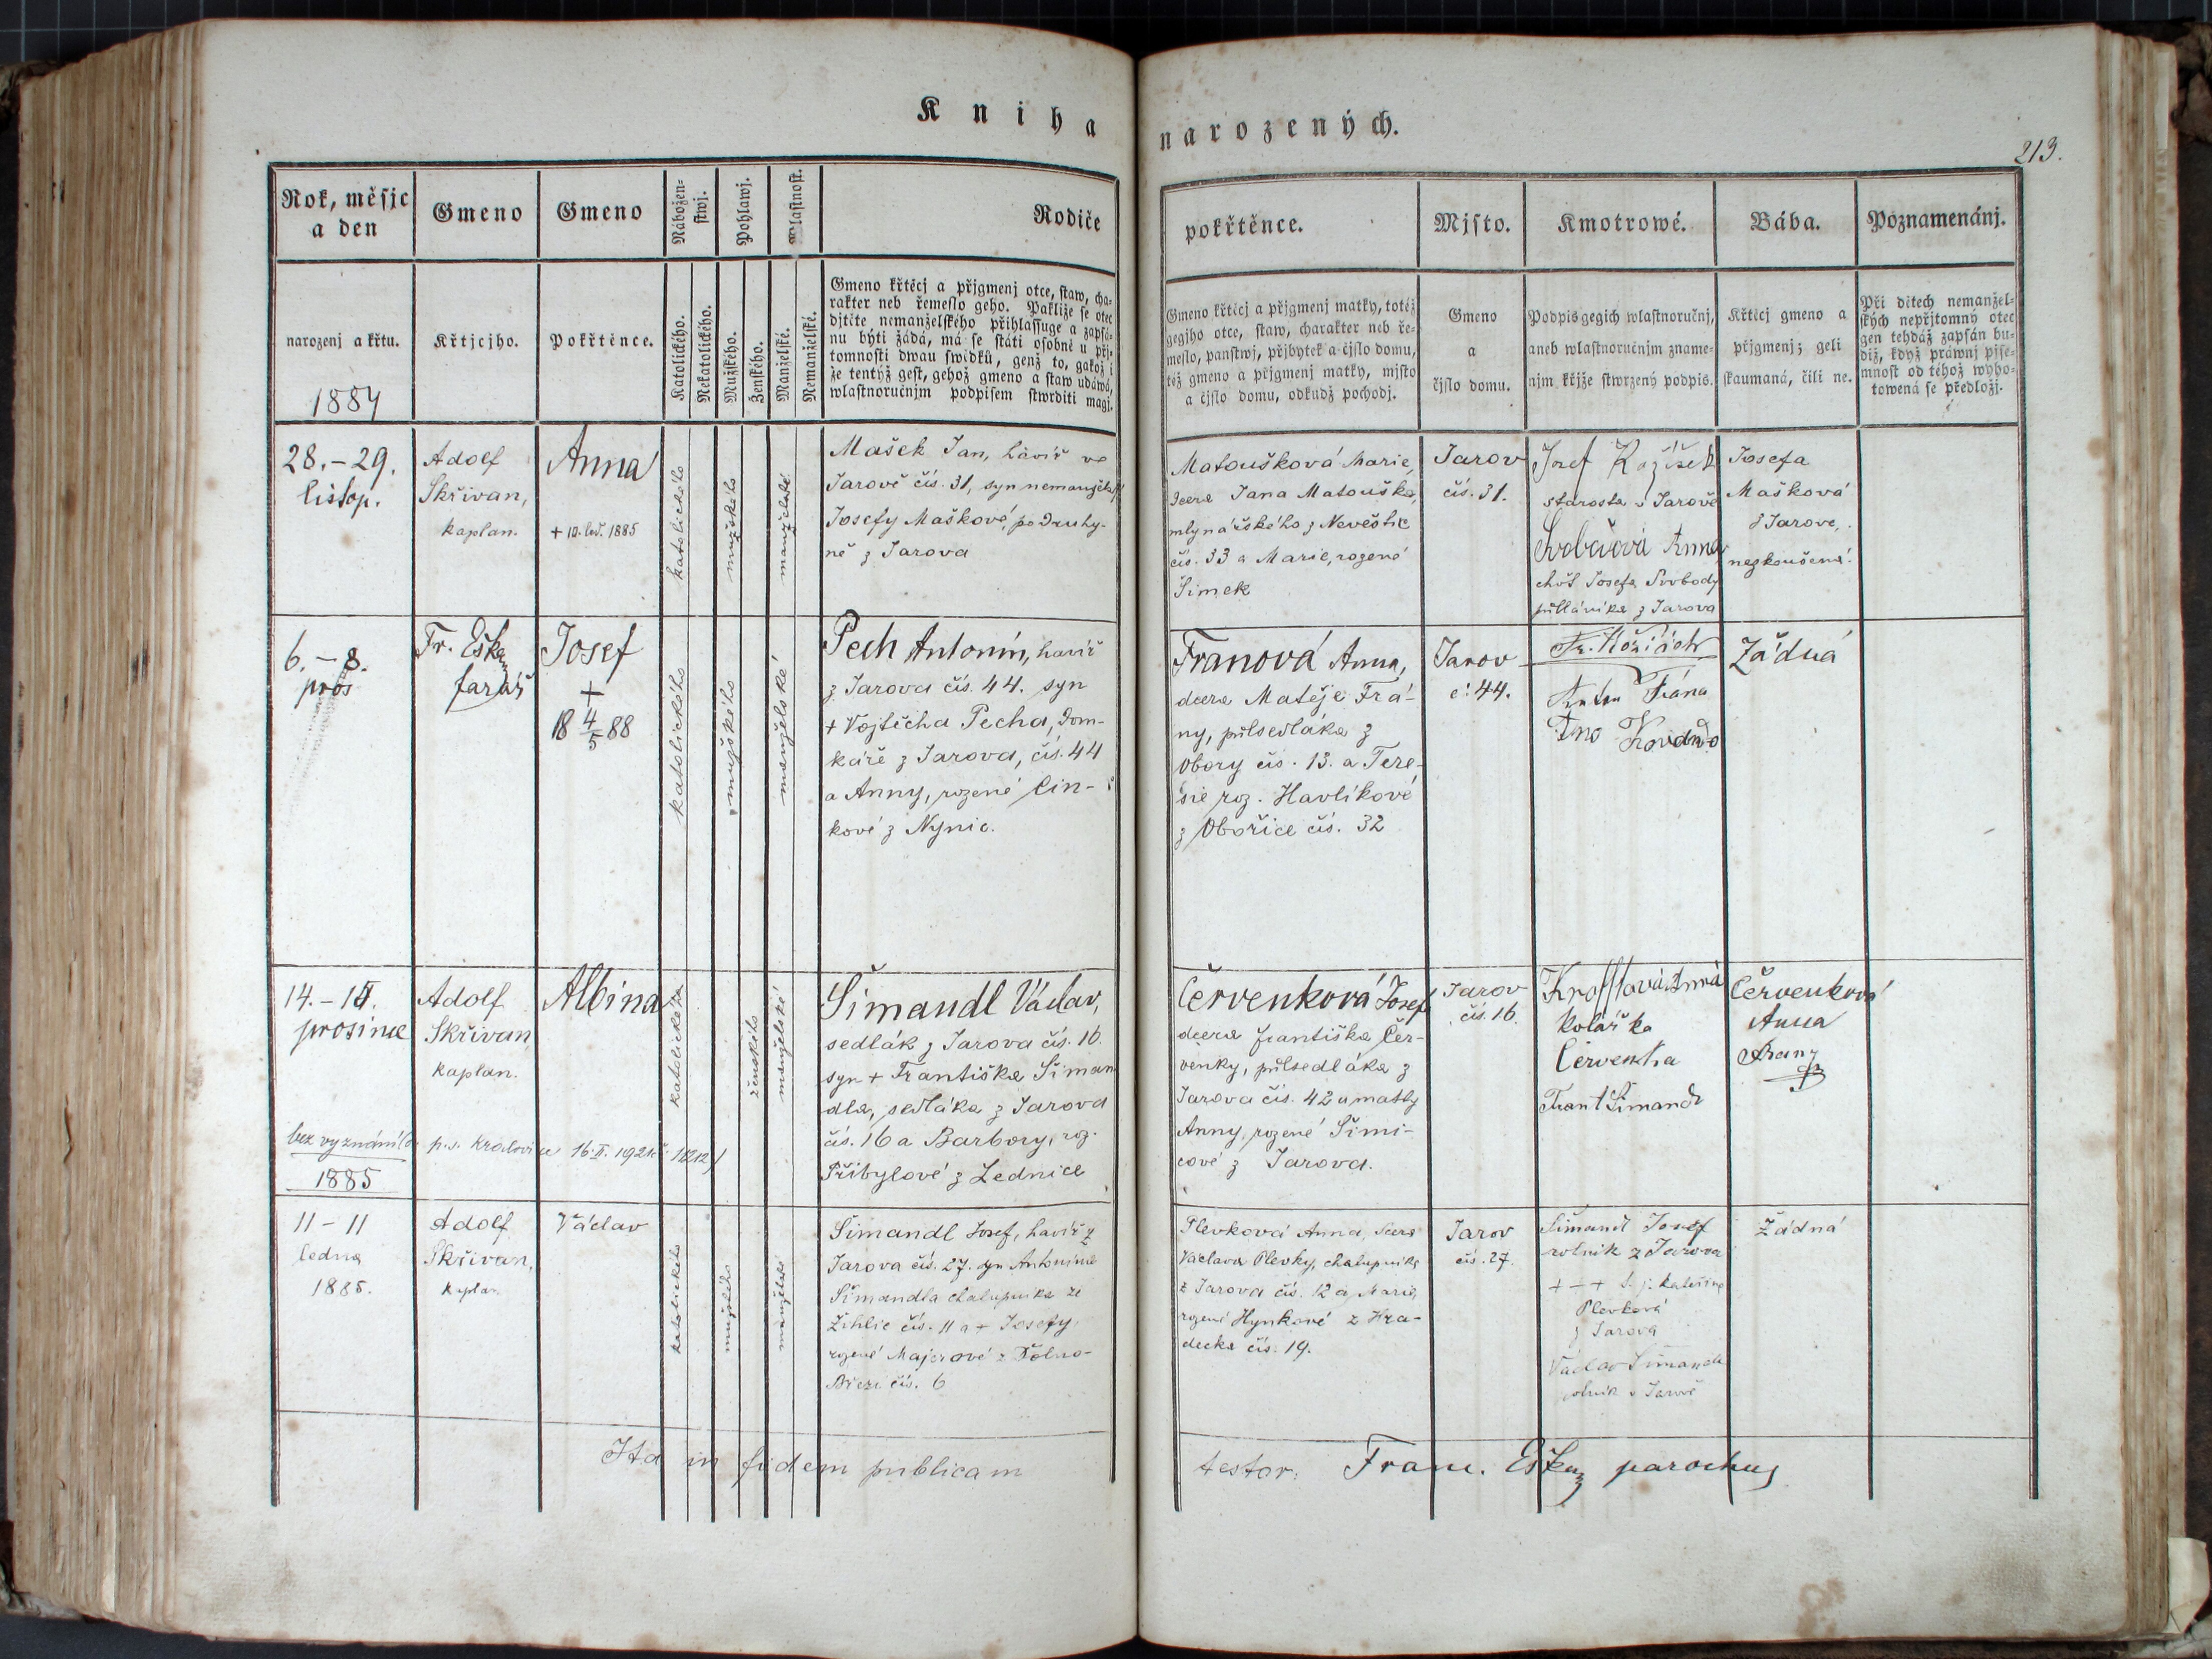 Kniha narozených.
213.
Rok, měsjc
a den
Gmeno
Gmeno
Nábožen=
stwj.
Pohlawj.
Wlastnost.
Rodiče
pokřtěnce.
Mjsto.
Kmotrowé.
Bába.
Poznamenánj.
narozenj a křtu.
1884
Křtjcjho.
Pokřtěnce.
Katolického.
Nekatolického.
Mužského.
Ženského.
Manželské.
Nemanželské.
Gmeno křtěcj a přjgmenj otce, staw, cha=
rakter neb řemeslo geho. Pakliže se otec
djtěte nemanželského přihlassuge a zapsá=
nu býti žádá, má se státi osobně u přj=
tomnosti dwau swědků, genž to, gakož i
že tentýž gest, gehož gmeno a staw udáwá,
wlastnoručnjm podpisem stwrditi magj.
Gmeno křtěcj a přjgmenj matky, totéž
gegjho otce, staw, charakter neb ře=
meslo, panstwj, přjbytek a čjslo domu,
též gmeno a přjgmenj matky, mjsto
a čjslo domu, odkudž pocházj.
Gmeno
a
čjslo domu.
Podpis gegich wlastnoručnj,
aneb wlastnoručnjm zname=
njm křjže stwrzený podpis.
Křtěcj gmeno a
přjgmenj; geli
skaumaná, čili ne.
Při dětech nemanžel=
ských nepřjtomný otec
gen tehdáž zapsán bu=
diž, když práwnj pjse=
mnost od téhož wyho=
towená se předložj.
28. - 29.
listop.
Adolf
Skřivan,
kaplan.
Anna
+ 10. led. 1885
katolického
mužského
manželské
Mašek Jan, havíř v
Jarově čís. 31, syn nemanžels.
Josefy Maškové, podruhy-
ně z Jarova
Matoušková Marie,
dcera Jana Matouška,
mlynářského z Nevěstic
čís. 33 a Marie, rozené
Šimek
Jarov
čís. 31.
Josef
starosta v Jarově
Svobodová Anna
choť Josefa Svobody
půlláníka z Jarova
Josefa
Mašková
z Jarova,
nezkoušená.
6. - 8.
pros
Fr. Eška
farář
Josef
+
18 4/5 88
katolického
mužského
manželské
Pech Antonín, havíř
z Jarova čís. 44. syn
+ Vojtěcha Pecha, dom-
káře z Jarova, čís. 44
a Anny, rozené Cin-
kové z Nynic.
Franová Anna,
dcera Matěje Frá-
ny, půlsedláka z
Obory čís. 13. a Tere-
sie roz. Havlíkové
z Obořice čís. 32
Jarov
č. 44.
Fr.
Anton Frána
Žádná
14. - 15.
prosince
Adolf
Skřivan
kaplan.
Albina
katolického
ženského
manželské
Šimandl Václav,
sedlák z Jarova čís. 16.
syn + Františka Šiman
dla, sedláka z Jarova
čís. 16 a Barbory, roz.
Přibylové z Lednice
Červenková Josef
dcera Františka Čer-
venky, půlsedláka z
Jarova čís. 42 a matky
Anny, rozené Šimi-
cové z Jarova.
Jarov
čís. 16.
Anna
kolářka
Červenka
Frant Šimandl
Červenková
Anna
bez vyznání p.s. Kralovice 16. II. 1921
1885
11 - 11
ledna
1885.
Adolf
Skřivan,
kaplan.
Václav
katolického
mužského
manželské
Šimandl Josef, havíř z
Jarova čís. 27. syn Antonína
Šimandla chalupníka ze
Žihlic čís. 11 a + Josefy
rozené Majerové z Dolno-
Březí čís. 6
Plevková Anna, dcera
Václava Plevky, chalupníka
z Jarova čís. 12 a Marie,
rozené Hynkové z Hra-
decka čís. 19.
Jarov
čís. 27.
Šimandl Josef
rolník z Jarova
+ - + t. j. Kateřina
Plevková
z Jarova
Václav Šimandl
rolník v Jarově
Žádná
Ita in fidem publicam testor: Franc. Eška parochus